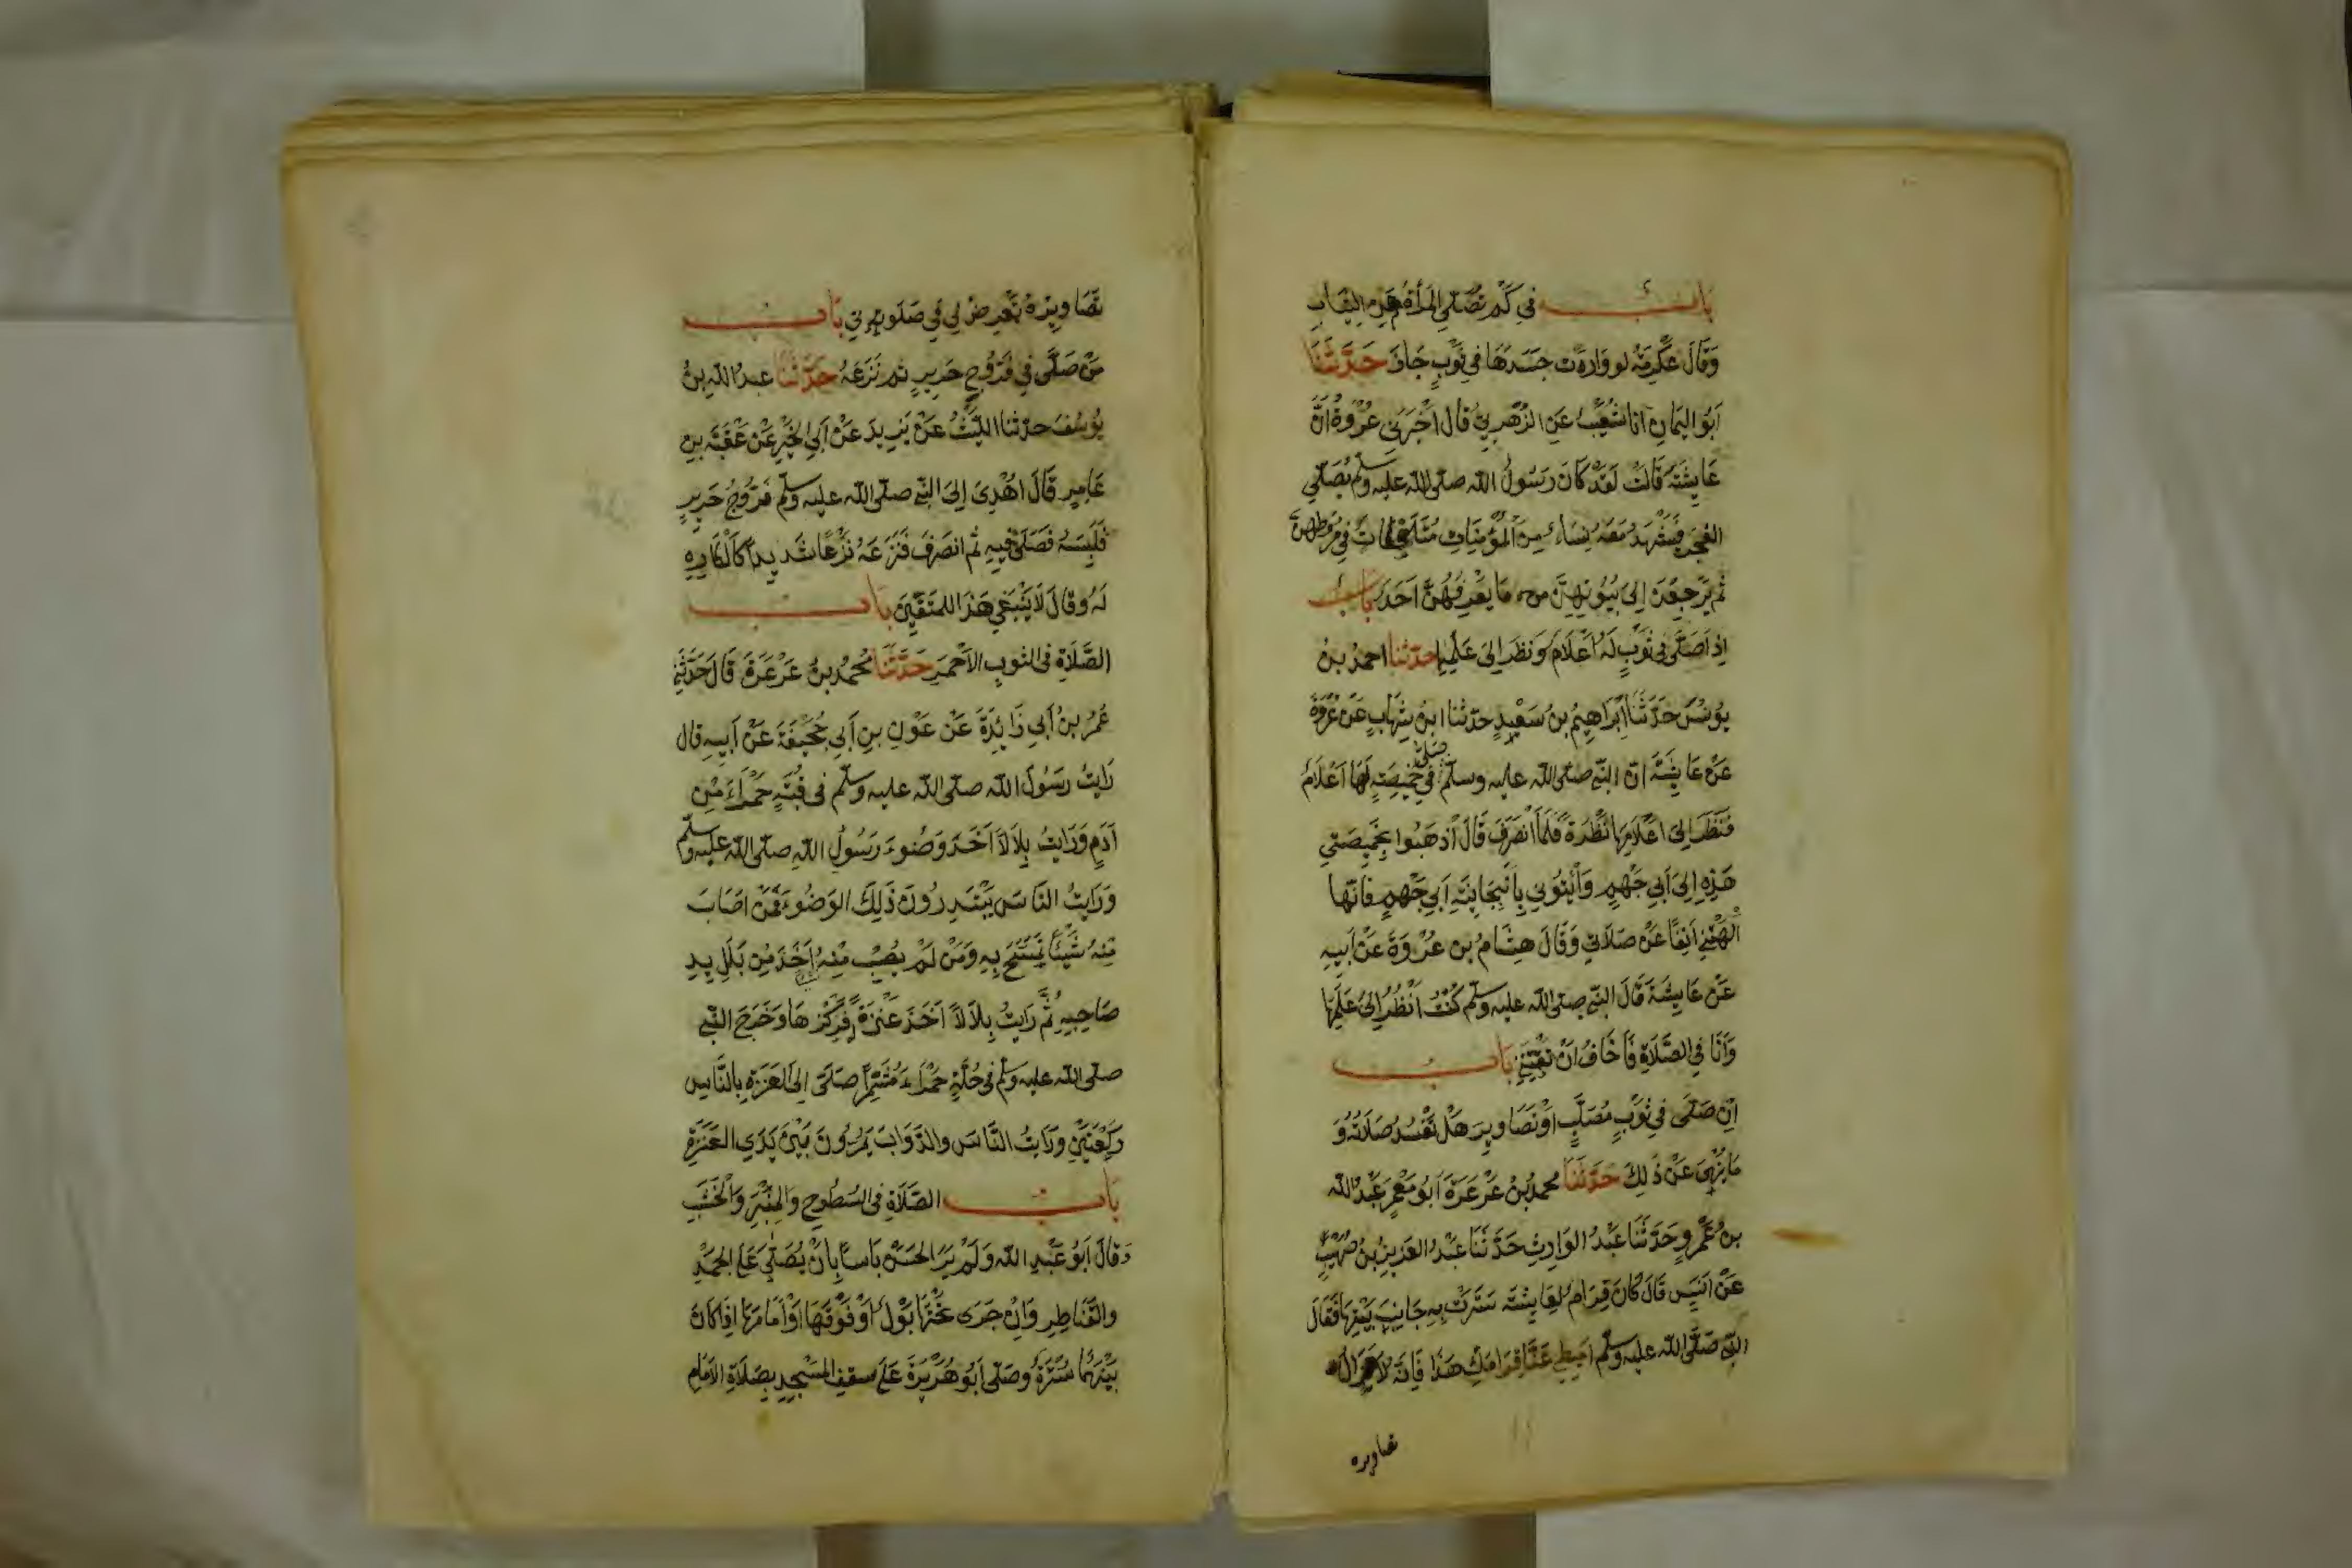 باب في كم تصلي المرأة من الثياب
وقال عكرمة لو وارت جسدها في ثوب جاز حدثنا
أبو اليمان انا شعيب عن الزهري قال أخبرني عروة ان
عايشة قالت لقد كان رسول الله صلى الله عليه وسلم يصلي
الفجر فتشهد معه نساء من المؤمنات متلفعات في مروطهن
ثم يرجعن إلى بيوتهن ما يعرفهن احد باب
إذا صلى في ثوب له أعلام ونظر إلى علمها حدثنا احمد بن
يونس حدثنا ابراهيم بن سعيد حدثنا ابن شهاب عن عروة
عن عايشة ان النبي صلى الله عليه وسلم صلى في خميصة لها أعلام
فنظر إلى اعلامها نظرة فلما انصرف قال اذهبوا بخميصتي
هذه إلى أبي جهم وأتوني بانبجانية أبي جهم فانها
ألهتني آنفا عن صلاتي وقال هشام بن عروة عن أبيه
عن عايشة قال النبي صلى الله عليه وسلم كنت أنظر إلى علمها
وأنا في الصلاة فأخاف ان تفتنني باب
ان صلى في ثوب مصلب او تصاوير هل تفسد صلاته و
ما ينهى عن ذلك حدثنا محمد بن عرعرة أبو معمر عبد الله
بن عمرو حدثنا عبد الوارث حدثنا عبد العزيز بن صهيب
عن انس قال كان قرام لعايشة سترت به جانب بيتها فقال
النبي صلى الله عليه وسلم اميطي عنا قرامك هذا فانه لا تزال
تصاويره
تصاويره تعرض لي في صلوتي باب
من صلى في فروج حرير ثم نزعه حدثنا عبد الله بن
يوسف حدثنا الليث عن يزيد عن أبي الخير عن عقبة بن
عامر قال اهدى إلى النبي صلى الله عليه وسلم فروج حرير
فلبسه فصلى فيه ثم انصرف فنزعه نزعا شديدا كالكاره
له وقال لا ينبغي هذا للمتقين باب
الصلاة في الثوب الاحمر حدثنا محمد بن عرعرة قال حدثني
عمر بن أبي زائدة عن عون بن أبي جحيفة عن أبيه قال
رايت رسول الله صلى الله عليه وسلم في قبة حمراء من
أدم ورايت بلالا أخذ وضوء رسول الله صلى الله عليه وسلم
ورايت الناس يبتدرون ذلك الوضوء فمن اصاب
منه شيئا تمسح به ومن لم يصب منه أخذ من بلل يد
صاحبه ثم رايت بلالا أخذ عنزة فركزها وخرج النبي
صلى الله عليه وسلم في حلة حمراء مشمرا صلى إلى العنزة بالناس
ركعتين ورايت الناس والدواب يمرون بين يدي العنزة
باب الصلاة في السطوح والمنبر والخشب
وقال أبو عبد الله ولم ير الحسن باسا بان يصلي على الجمد
والقناطر وان جرى تحتها بول أو فوقها أو أمامها اذا كان
بينهما سترة وصلى أبو هريرة على سقف المسجد بصلاة الامام